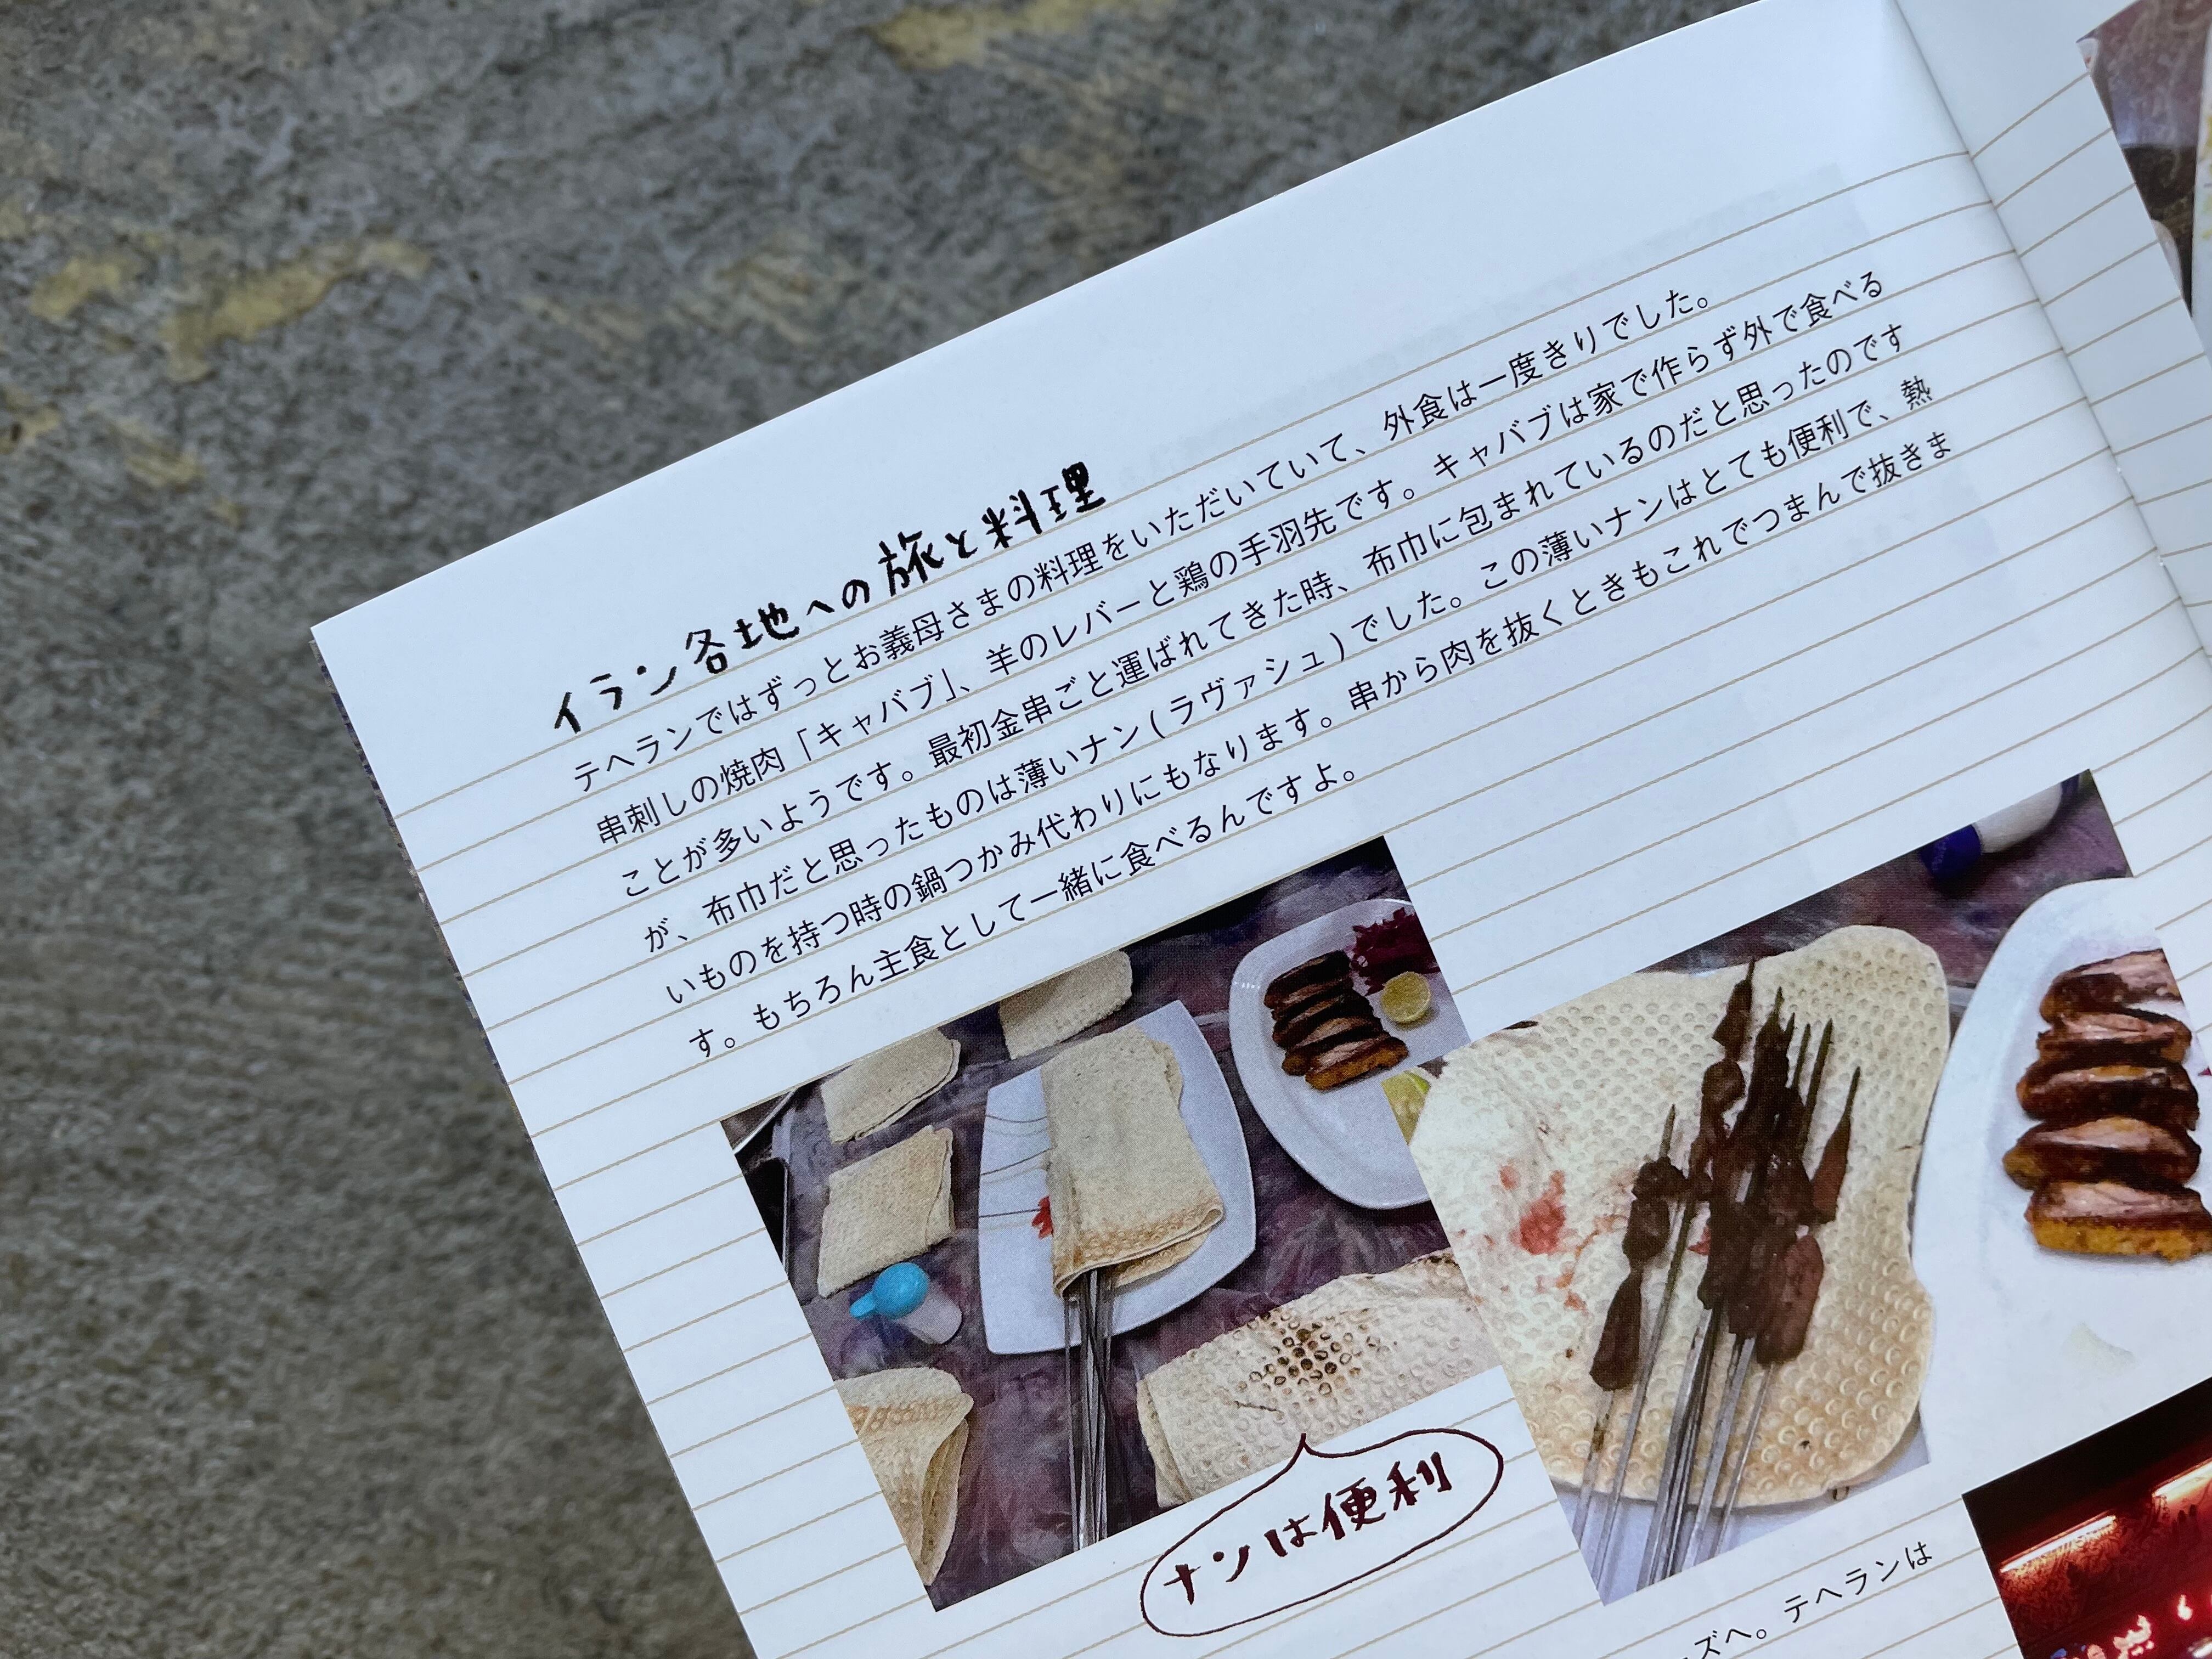 イラン各地への旅と料理
テヘランではずっとお義母さまの料理をいただいていて、外食は一度きりでした。
串刺しの焼肉「キャバブ」、羊のレバーと鶏の手羽先です。キャバブは家で作らず外で食べる
ことが多いようです。最初金串ごと運ばれてきた時、布巾に包まれているのだと思ったのです
が、布巾だと思ったものは薄いナン(ラヴァシュ)でした。この薄いナンはとても便利で、熱
いものを持つ時の鍋つかみ代わりにもなります。串から肉を抜くときもこれでつまんで抜きま
す。もちろん主食として一緒に食べるんですよ。
ナンは便利
ズへ。テヘランは